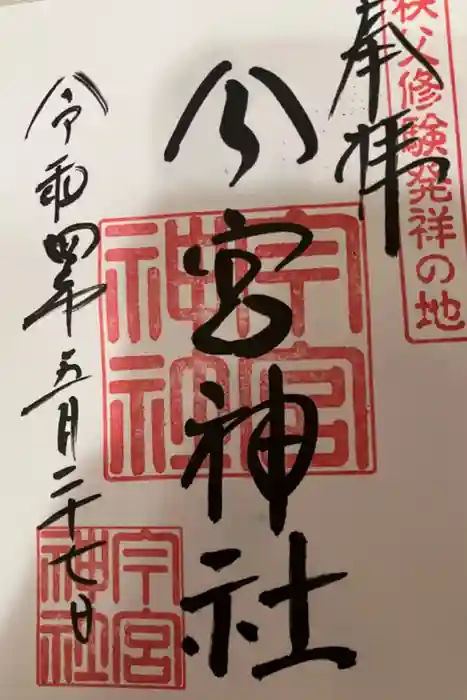 秩父修験発祥の地
奉拝
今宮神社
今宮
神社
令和四年五月二十七日
今宮
神社